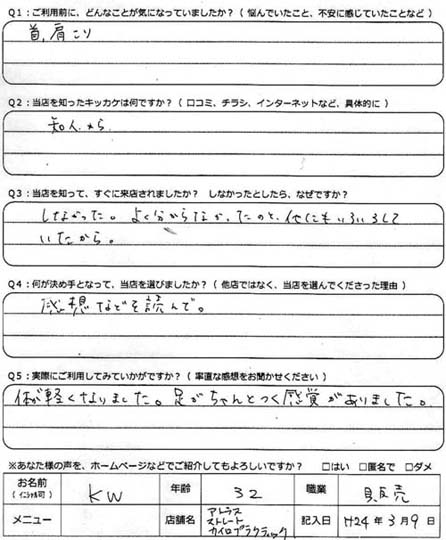 Q1：ご利用前に、どんなことが気になっていましたか？（ 悩んでいたこと、不安に感じていたことなど ）
首,肩こり
Q2：当店を知ったキッカケは何ですか？（ 口コミ、チラシ、インターネットなど、具体的に ）
知人から
Q3：当店を知って、すぐに来店されましたか？ しなかったとしたら、なぜですか？
しなかった。よく分からなかったのと、他にもいろいろして
いたから。
Q4：何が決め手となって、当店を選びましたか？（ 他店ではなく、当店を選んでくださった理由 ）
感想などを読んで。
Q5：実際にご利用してみていかがですか？（ 率直な感想をお聞かせください ）
体が軽くなりました。足がちゃんとつく感覚がありました。
※あなた様の声を、ホームページなどでご紹介してもよろしいですか？ □はい □匿名で □ダメ
お名前（ｲﾆｼｬﾙ可） KW 年齢 32 職業 販売
メニュー 店舗名 アトラスストレートカイロプラクティック 記入日 H24年3月9日